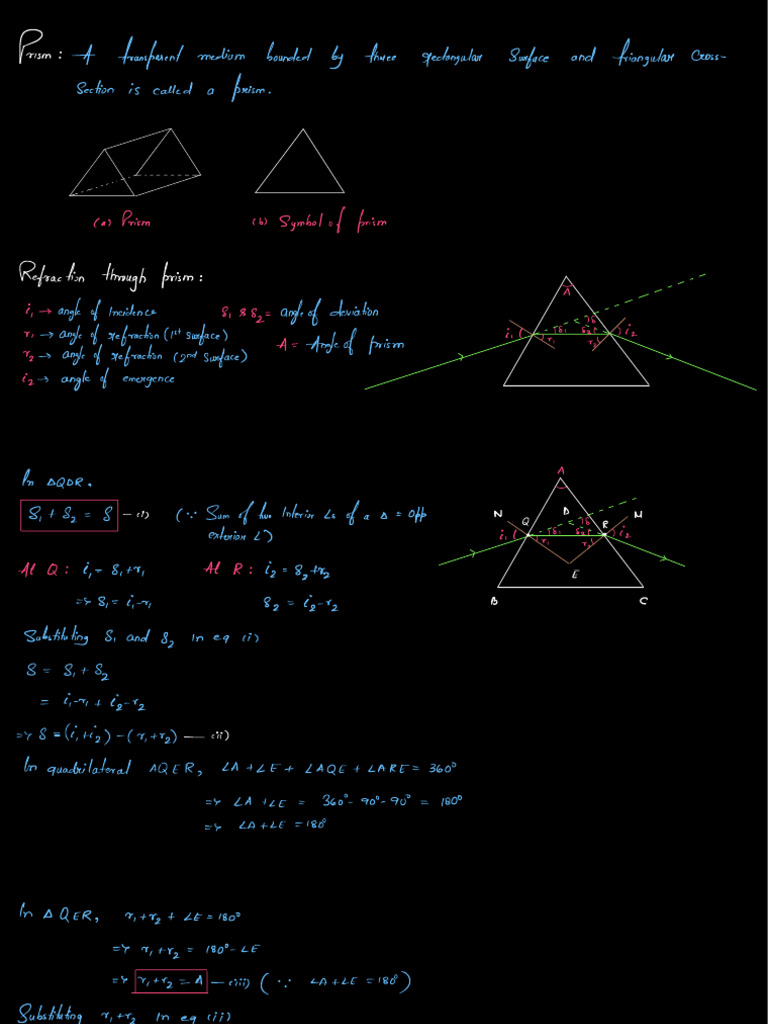 Prism: A transparent medium bounded by three rectangular surface and triangular cross-
section is called a prism.
(a) Prism
(b) Symbol of prism
Refraction through prism:
i₁ → angle of incidence
δ₁ & δ₂ = angle of deviation
r₁ → angle of refraction (1st surface)
A = Angle of prism
r₂ → angle of refraction (2nd surface)
i₂ → angle of emergence
A
δ
i₁
δ₁
δ₂
i₂
r₁
r₂
In ΔQDR,
δ₁ + δ₂ = δ — (i) (∵ Sum of two interior ∠s of a Δ = opp
exterior ∠)
At Q: i₁ = δ₁+r₁
At R: i₂ = δ₂+r₂
⇒ δ₁ = i₁-r₁
δ₂ = i₂-r₂
A
N
Q
D
δ
R
M
i₁
r₁
δ₁
δ₂
r₂
i₂
E
B
C
Substituting δ₁ and δ₂ in eq (i)
δ = δ₁ + δ₂
= i₁-r₁ + i₂-r₂
⇒ δ = (i₁+i₂) - (r₁+r₂) — (ii)
In quadrilateral AQER, ∠A + ∠E + ∠AQE + ∠ARE = 360°
⇒ ∠A + ∠E = 360° - 90° - 90° = 180°
⇒ ∠A + ∠E = 180°
In ΔQER, r₁+r₂ + ∠E = 180°
⇒ r₁+r₂ = 180° - ∠E
⇒ r₁+r₂ = A — (iii) (∵ ∠A + ∠E = 180°)
Substituting r₁+r₂ in eq (ii)